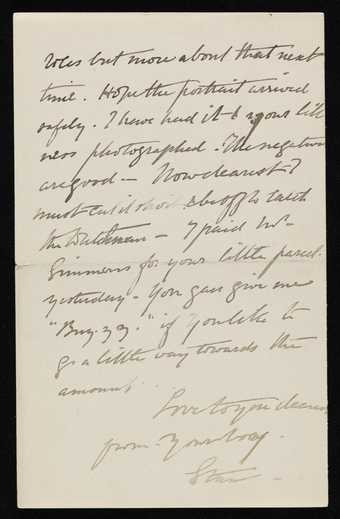 but more about that next
time. Hope the portrait arrived
safely. I have had it & your like
ness photographed. The negatives
are good — Now dearest I
must cut it short & be off to catch
the — I paid Mr
Simmons for your little parcel
yesterday. You can give me
if you like to
go a little way towards the
amount.
Love to you dearest
from your boy.
Stan